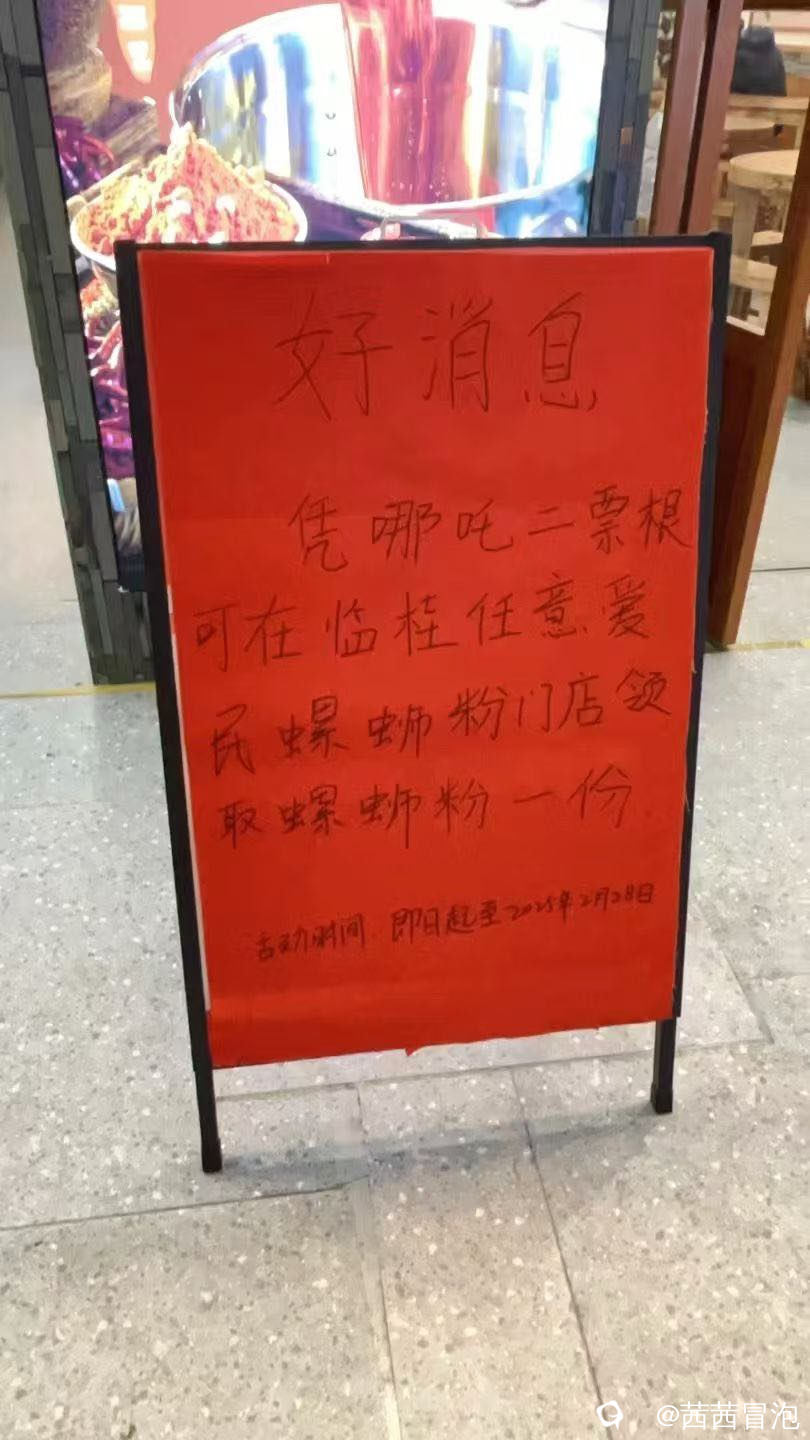 好消息
凭哪吒二票根
可在临桂任意爱
民螺蛳粉门店领
取螺蛳粉一份
活动时间 即日起至2025年2月28日
@茜茜冒泡